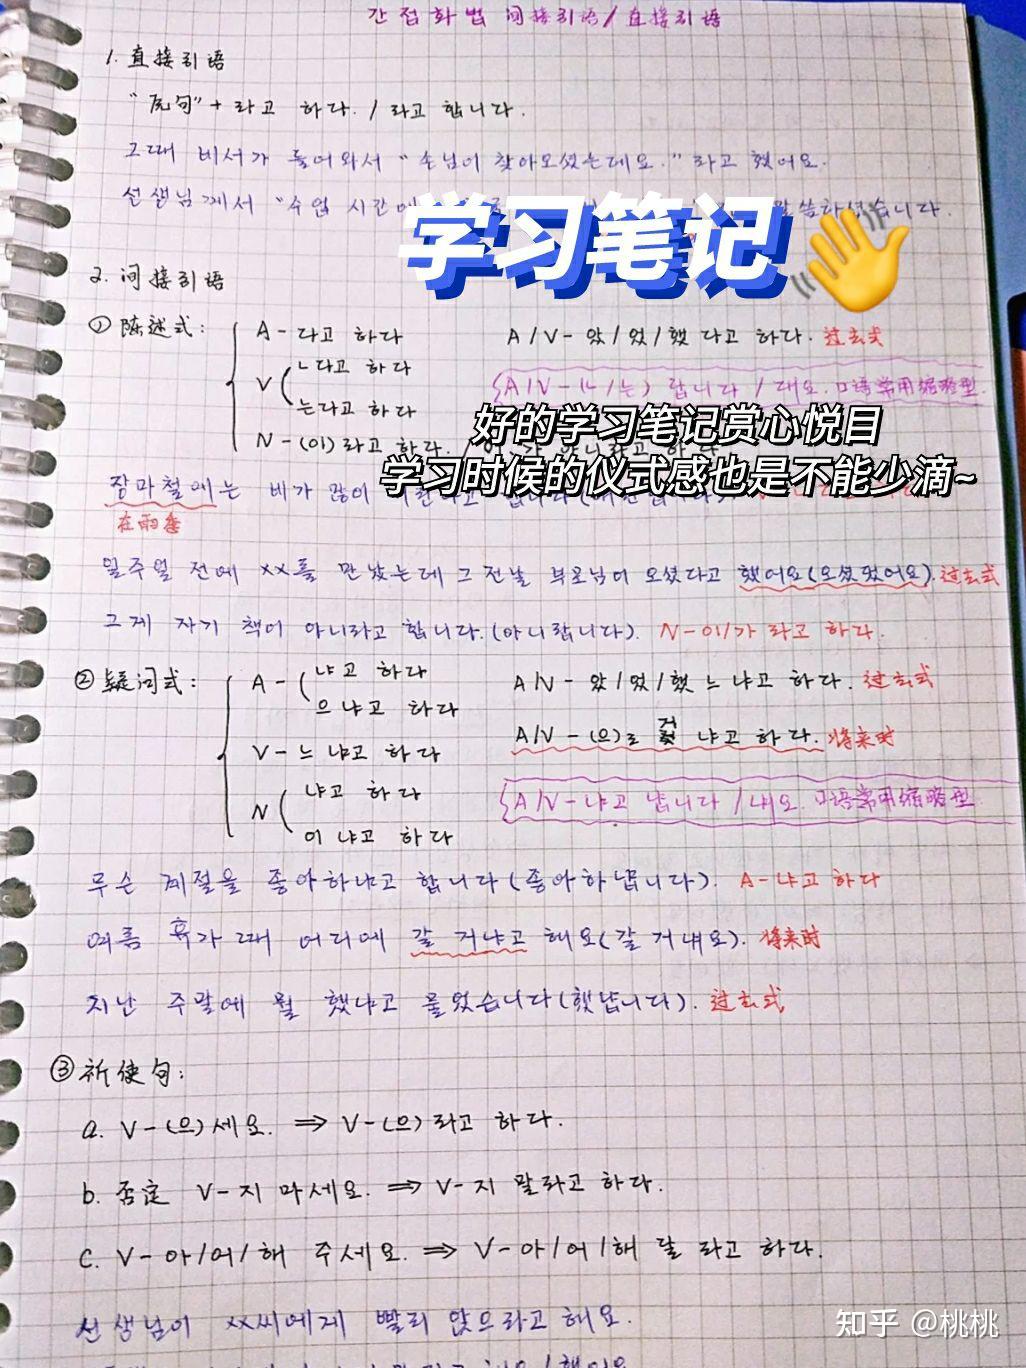 간접화법 间接引语/直接引语
1. 直接引语
"尾句"+라고 하다. / 라고 합니다.
그때 비서가 들어와서 "손님이 찾아오셨는데요." 라고 했어요.
선생님께서 "수업 시간에 말씀하셨습니다.
学习笔记👋
2. 间接引语
① 陈述式:
A - 다고 하다
V ㄴ다고 하다
는다고 하다
N - (이)라고 하다.
A/V - 았/었/했 다고 하다. 过去式
A/V - (ㄴ/는) 랍니다 / 대요. 口语常用缩略型.
好的学习笔记赏心悦目
学习时候的仪式感也是不能少滴~
장마철에는 비가 많이
在雨季
일주일 전에 XX를 만났는데 그 전날 부모님이 오셨다고 했어요(오셨댔어요). 过去式
그게 자기 책이 아니라고 합니다.(아니랍니다). N-이/가 라고 하다.
② 疑问式:
A - 냐고 하다
으냐고 하다
V - 느냐고 하다
N 냐고 하다
이냐고 하다
A/V - 았/었/했 느냐고 하다. 过去式
A/V - (으)ㄹ 거 냐고 하다. 将来时
A/V - 냐고 냅니다 / 내요. 口语常用缩略型
무슨 계절을 좋아하냐고 합니다(좋아하냡니다). A-냐고 하다
여름 휴가 때 어디에 갈 거냐고 해요(갈 거냬요). 将来时
지난 주말에 뭘 했냐고 물었습니다(했냡니다). 过去式
③ 祈使句:
a. V-(으)세요. ⇒ V-(으)라고 하다.
b. 否定 V-지 마세요. ⇒ V-지 말라고 하다.
c. V-아/어/해 주세요. ⇒ V-아/어/해 달라고 하다.
선생님이 XX씨에게 빨리 앉으라고 해요.
知乎 @桃桃